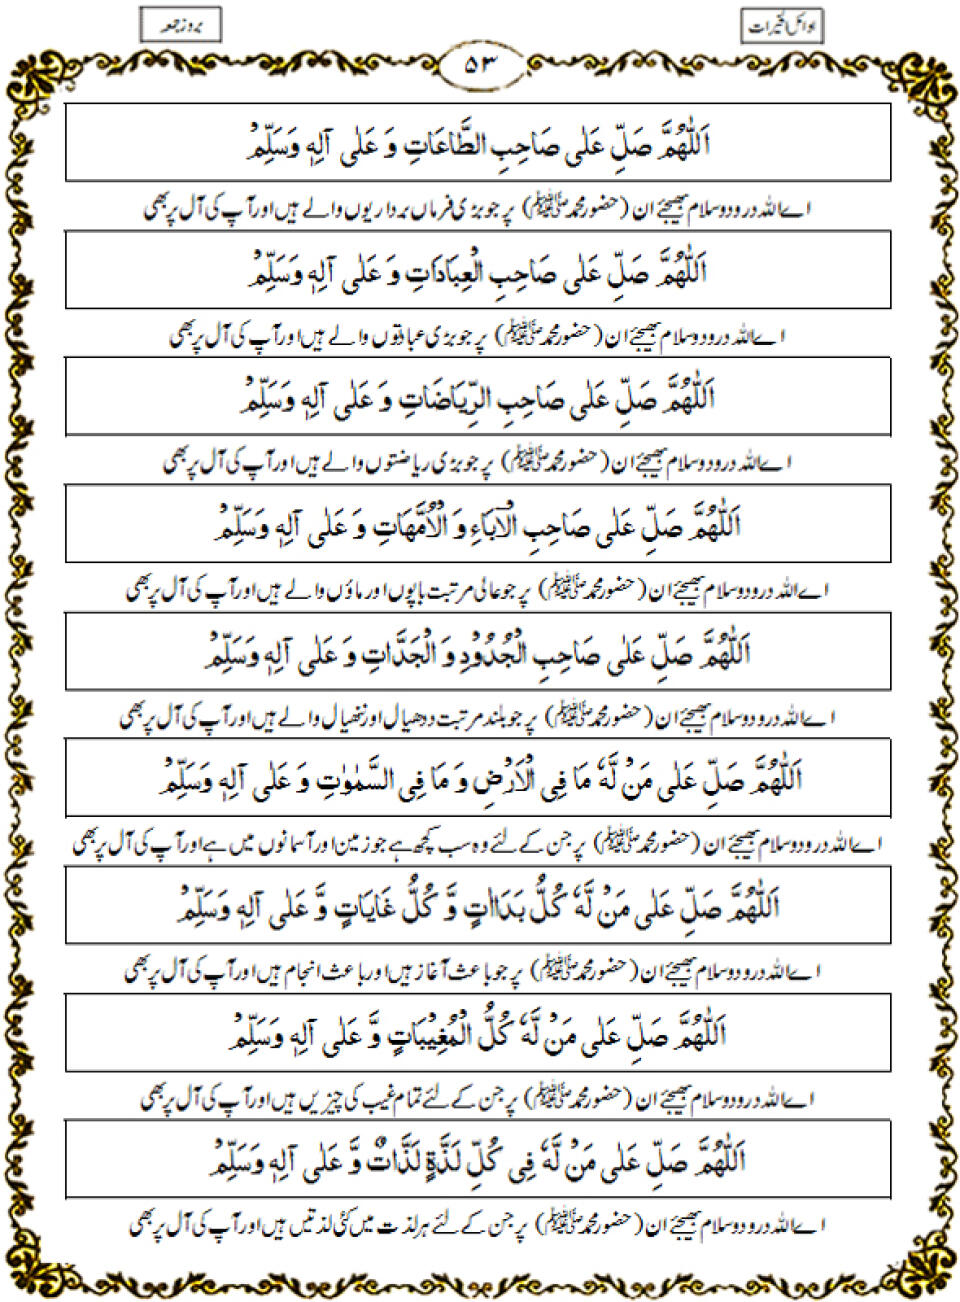 اوائل الخیرات
بروز جمعہ
۵۳
اَللّٰهُمَّ صَلِّ عَلٰی صَاحِبِ الطَّاعَاتِ وَ عَلٰی آلِهٖ وَسَلِّمْ
اے اللہ درود و سلام بھیجئے ان (حضور محمد ﷺ) پر جو بڑی فرماں برداریوں والے ہیں اور آپ کی آل پر بھی
اَللّٰهُمَّ صَلِّ عَلٰی صَاحِبِ الْعِبَادَاتِ وَ عَلٰی آلِهٖ وَسَلِّمْ
اے اللہ درود و سلام بھیجئے ان (حضور محمد ﷺ) پر جو بڑی عبادتوں والے ہیں اور آپ کی آل پر بھی
اَللّٰهُمَّ صَلِّ عَلٰی صَاحِبِ الرِّيَاضَاتِ وَ عَلٰی آلِهٖ وَسَلِّمْ
اے اللہ درود و سلام بھیجئے ان (حضور محمد ﷺ) پر جو بڑی ریاضتوں والے ہیں اور آپ کی آل پر بھی
اَللّٰهُمَّ صَلِّ عَلٰی صَاحِبِ الْاٰبَاءِ وَ الْاُمَّهَاتِ وَ عَلٰی آلِهٖ وَسَلِّمْ
اے اللہ درود و سلام بھیجئے ان (حضور محمد ﷺ) پر جو عالی مرتبت باپوں اور ماؤں والے ہیں اور آپ کی آل پر بھی
اَللّٰهُمَّ صَلِّ عَلٰی صَاحِبِ الْجُدُوْدِ وَ الْجَدَّاتِ وَ عَلٰی آلِهٖ وَسَلِّمْ
اے اللہ درود و سلام بھیجئے ان (حضور محمد ﷺ) پر جو بلند مرتبت ددھیال اور ننھیال والے ہیں اور آپ کی آل پر بھی
اَللّٰهُمَّ صَلِّ عَلٰی مَنْ لَهٗ مَا فِی الْاَرْضِ وَ مَا فِی السَّمٰوٰتِ وَ عَلٰی آلِهٖ وَسَلِّمْ
اے اللہ درود و سلام بھیجئے ان (حضور محمد ﷺ) پر جن کے لئے وہ سب کچھ ہے جو زمین اور آسمانوں میں ہے اور آپ کی آل پر بھی
اَللّٰهُمَّ صَلِّ عَلٰی مَنْ لَّهٗ كُلُّ بَدَااتٍ وَّ كُلُّ غَايَاتٍ وَّ عَلٰی آلِهٖ وَسَلِّمْ
اے اللہ درود و سلام بھیجئے ان (حضور محمد ﷺ) پر جو باعث آغاز ہیں اور باعث انجام ہیں اور آپ کی آل پر بھی
اَللّٰهُمَّ صَلِّ عَلٰی مَنْ لَّهٗ كُلُّ الْمُغِيْبَاتٍ وَّ عَلٰی آلِهٖ وَسَلِّمْ
اے اللہ درود و سلام بھیجئے ان (حضور محمد ﷺ) پر جن کے لئے تمام غیب کی چیزیں ہیں اور آپ کی آل پر بھی
اَللّٰهُمَّ صَلِّ عَلٰی مَنْ لَّهٗ فِی كُلِّ لَذَّةٍ لَذَّاتٌ وَّ عَلٰی آلِهٖ وَسَلِّمْ
اے اللہ درود و سلام بھیجئے ان (حضور محمد ﷺ) پر جن کے لئے ہر لذت میں کئی لذتیں ہیں اور آپ کی آل پر بھی